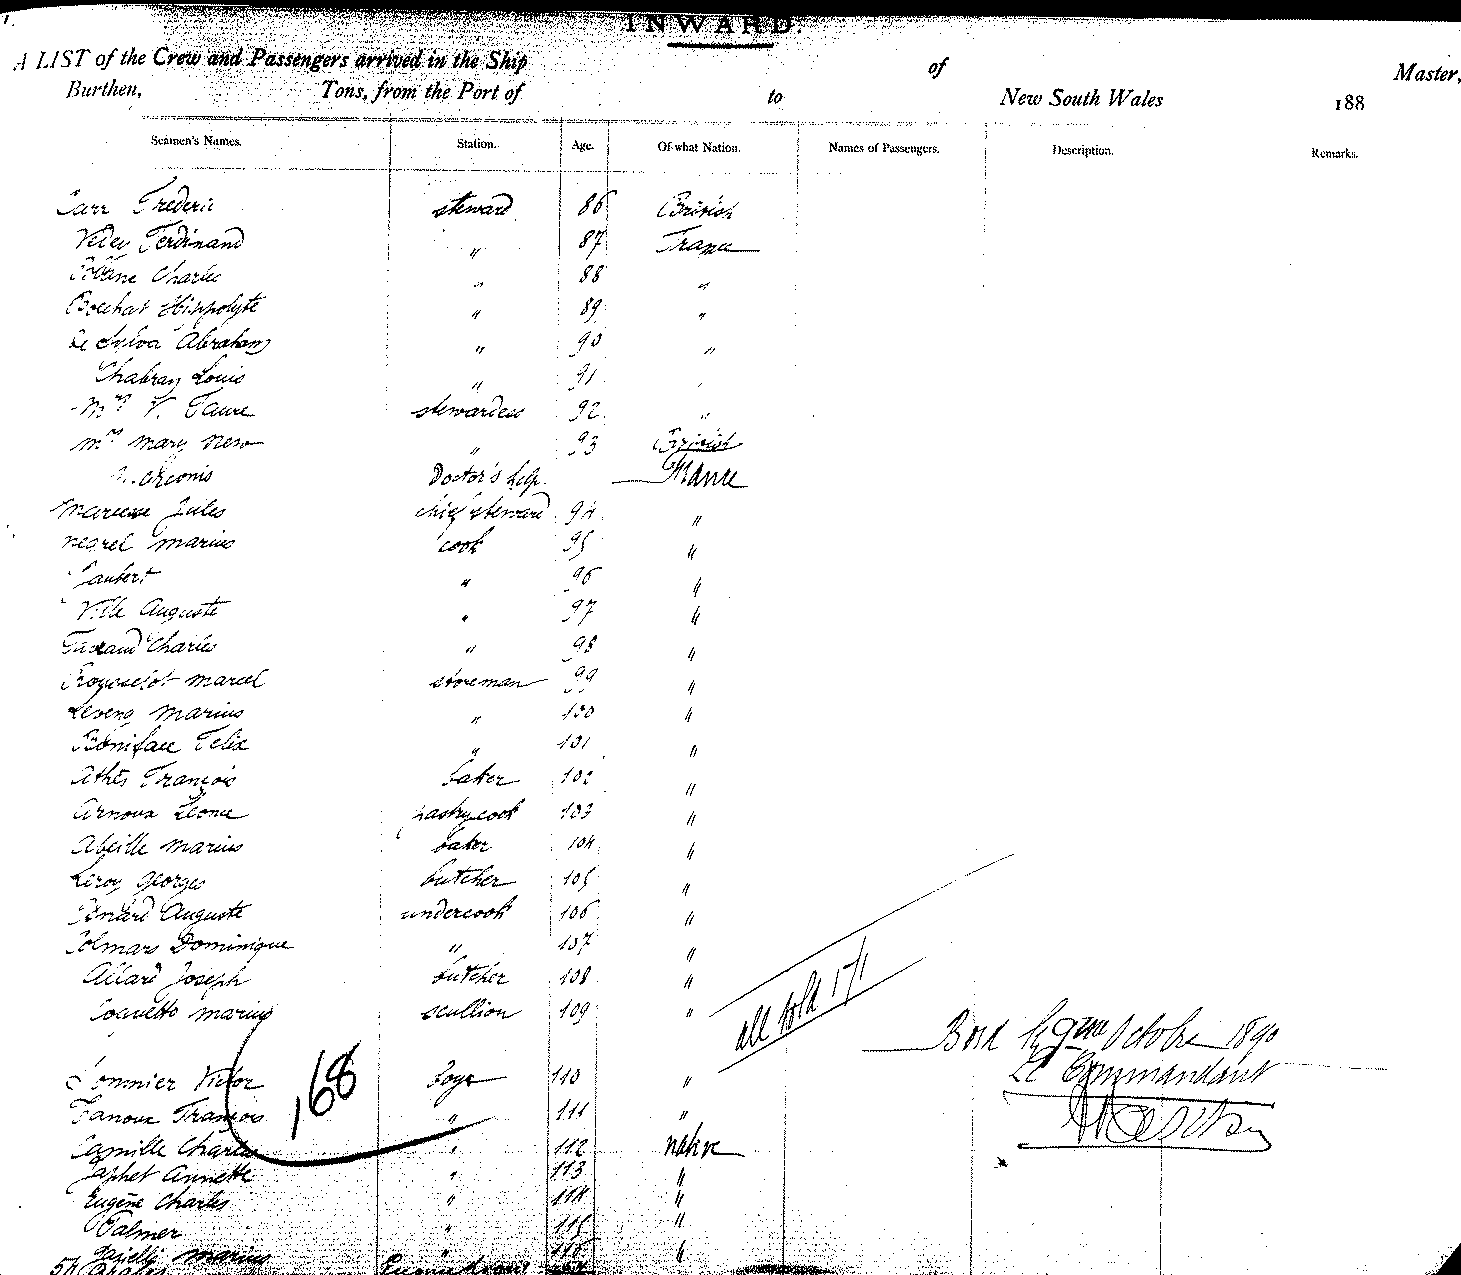 INWARD.
A LIST of the Crew and Passengers arrived in the Ship of Master,
Burthen, Tons, from the Port of to New South Wales 188
Seamen's Names. Station. Age. Of what Nation. Names of Passengers. Description. Remarks.
Carr Frederic steward 86 British
Ferdinand " 87 France
Charles " 88 "
Bochat Hippolyte " 89 "
De Sylva Abraham " 90 "
Chabran Louis " 91
Mrs V. Faure stewardess 92 "
Mrs Mary New " 93 British
Doctor's help France
Jules chief steward 94 "
Negrel Marius cook 95 "
Jaubert " 96 "
Ville Auguste " 97 "
Charles " 98 "
Marcel storeman 99 "
Marius " 100 "
Boniface Felix " 101 "
Athès François baker 102 "
Arnoux Leonce pastrycook 103 "
Abeille Marius baker 104 "
Leroy Georges butcher 105 "
Auguste undercook 106 "
Colmars Dominique " 107 "
Allard Joseph butcher 108 "
Marius scullion 109 "
all told 171
Bord le 9me Octobre 1890
Le Commandant
168
Victor boys 110 "
François " 111 "
Camille Charles " 112 native
Japhet Annette " 113 "
Eugène Charles " 114 "
Palmer " 115 "
Marius " 116 "